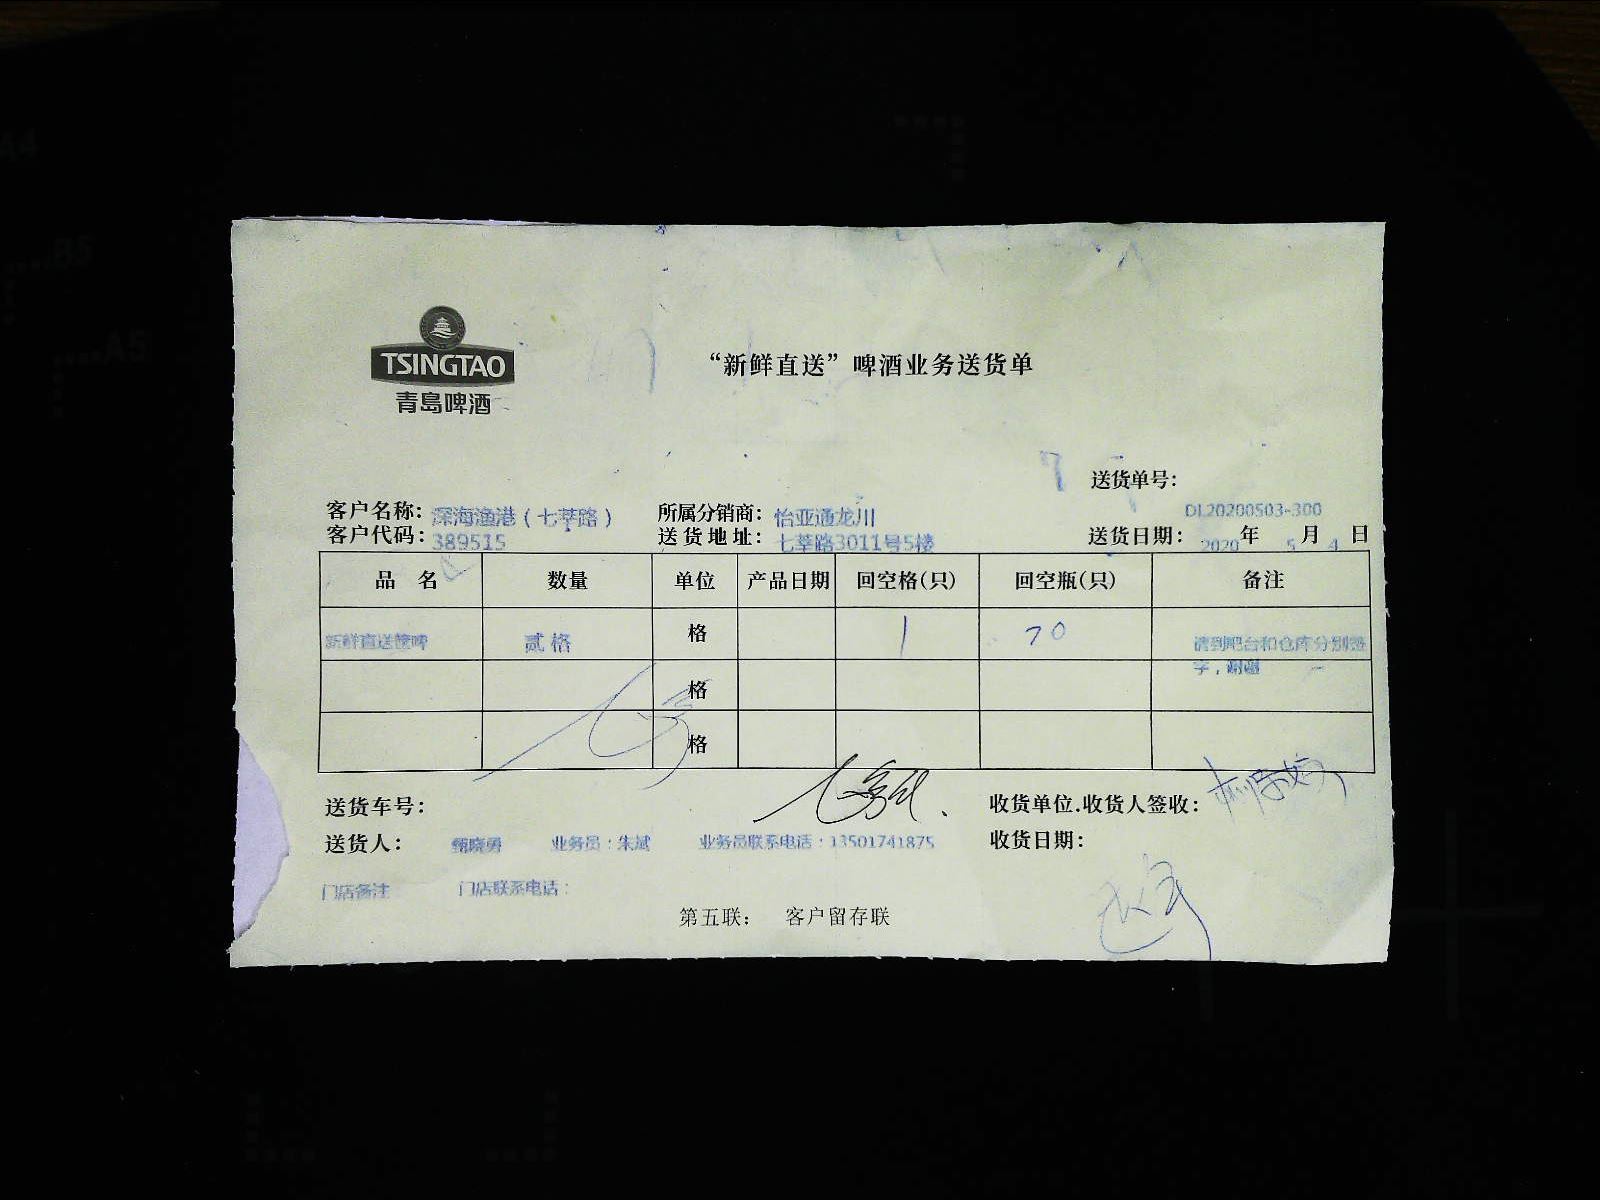 TSINGTAO
青岛啤酒
“新鲜直送”啤酒业务送货单
送货单号：
DL20200503-300
客户名称：深海渔港（七莘路） 所属分销商：怡亚通龙川
客户代码：389515 送货地址：七莘路3011号5楼 送货日期：2020年5月4日
品 名 数量 单位 产品日期 回空格(只) 回空瓶(只) 备注
新鲜直送 啤 贰格 格 1 70 请到吧台和仓库分别签
字，谢谢
格
格
送货车号： 收货单位.收货人签收：
送货人：甄晓勇 业务员：朱斌 业务员联系电话：13501741875 收货日期：
门店备注 门店联系电话：
第五联： 客户留存联
A4
B5
A5